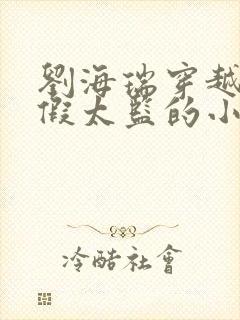 劉海瑞穿越
假太監的小
冷酷社會